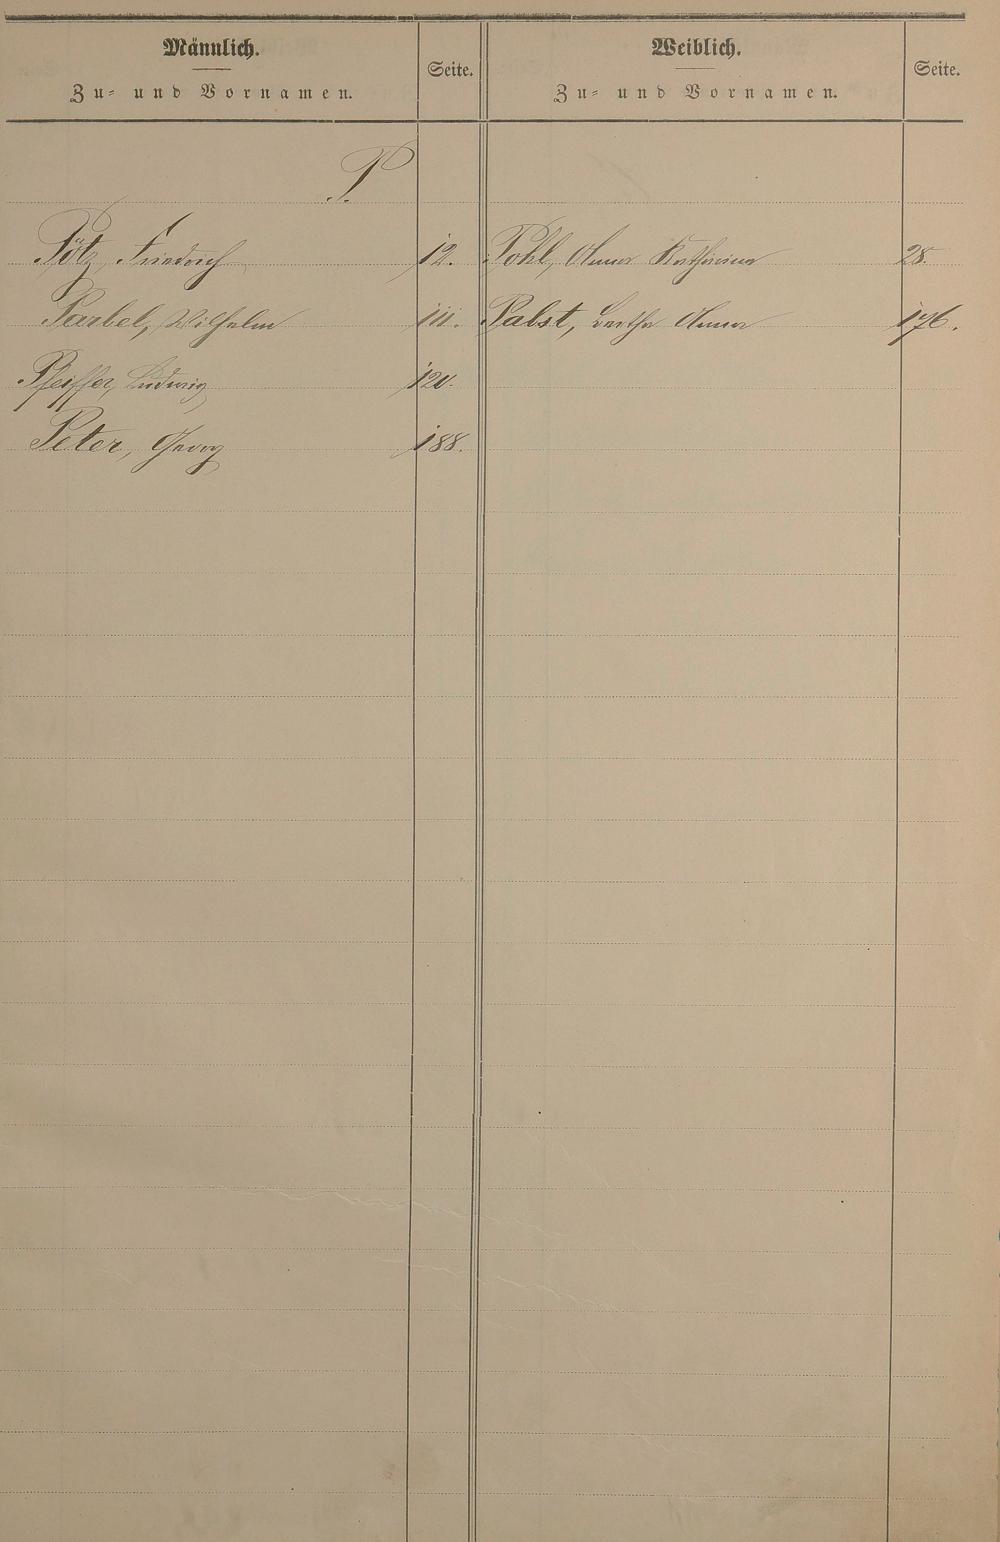 Männlich. Weiblich.
Zu- und Vornamen. Seite. Zu- und Vornamen. Seite.
P.
Pötz, Friedrich 12. Pohl, Anna Katharina 28.
Parbel, Wilhelm 111. Pabst, Bertha Anna 176.
Pfeiffer, Ludwig 120.
Peter, Georg 188.